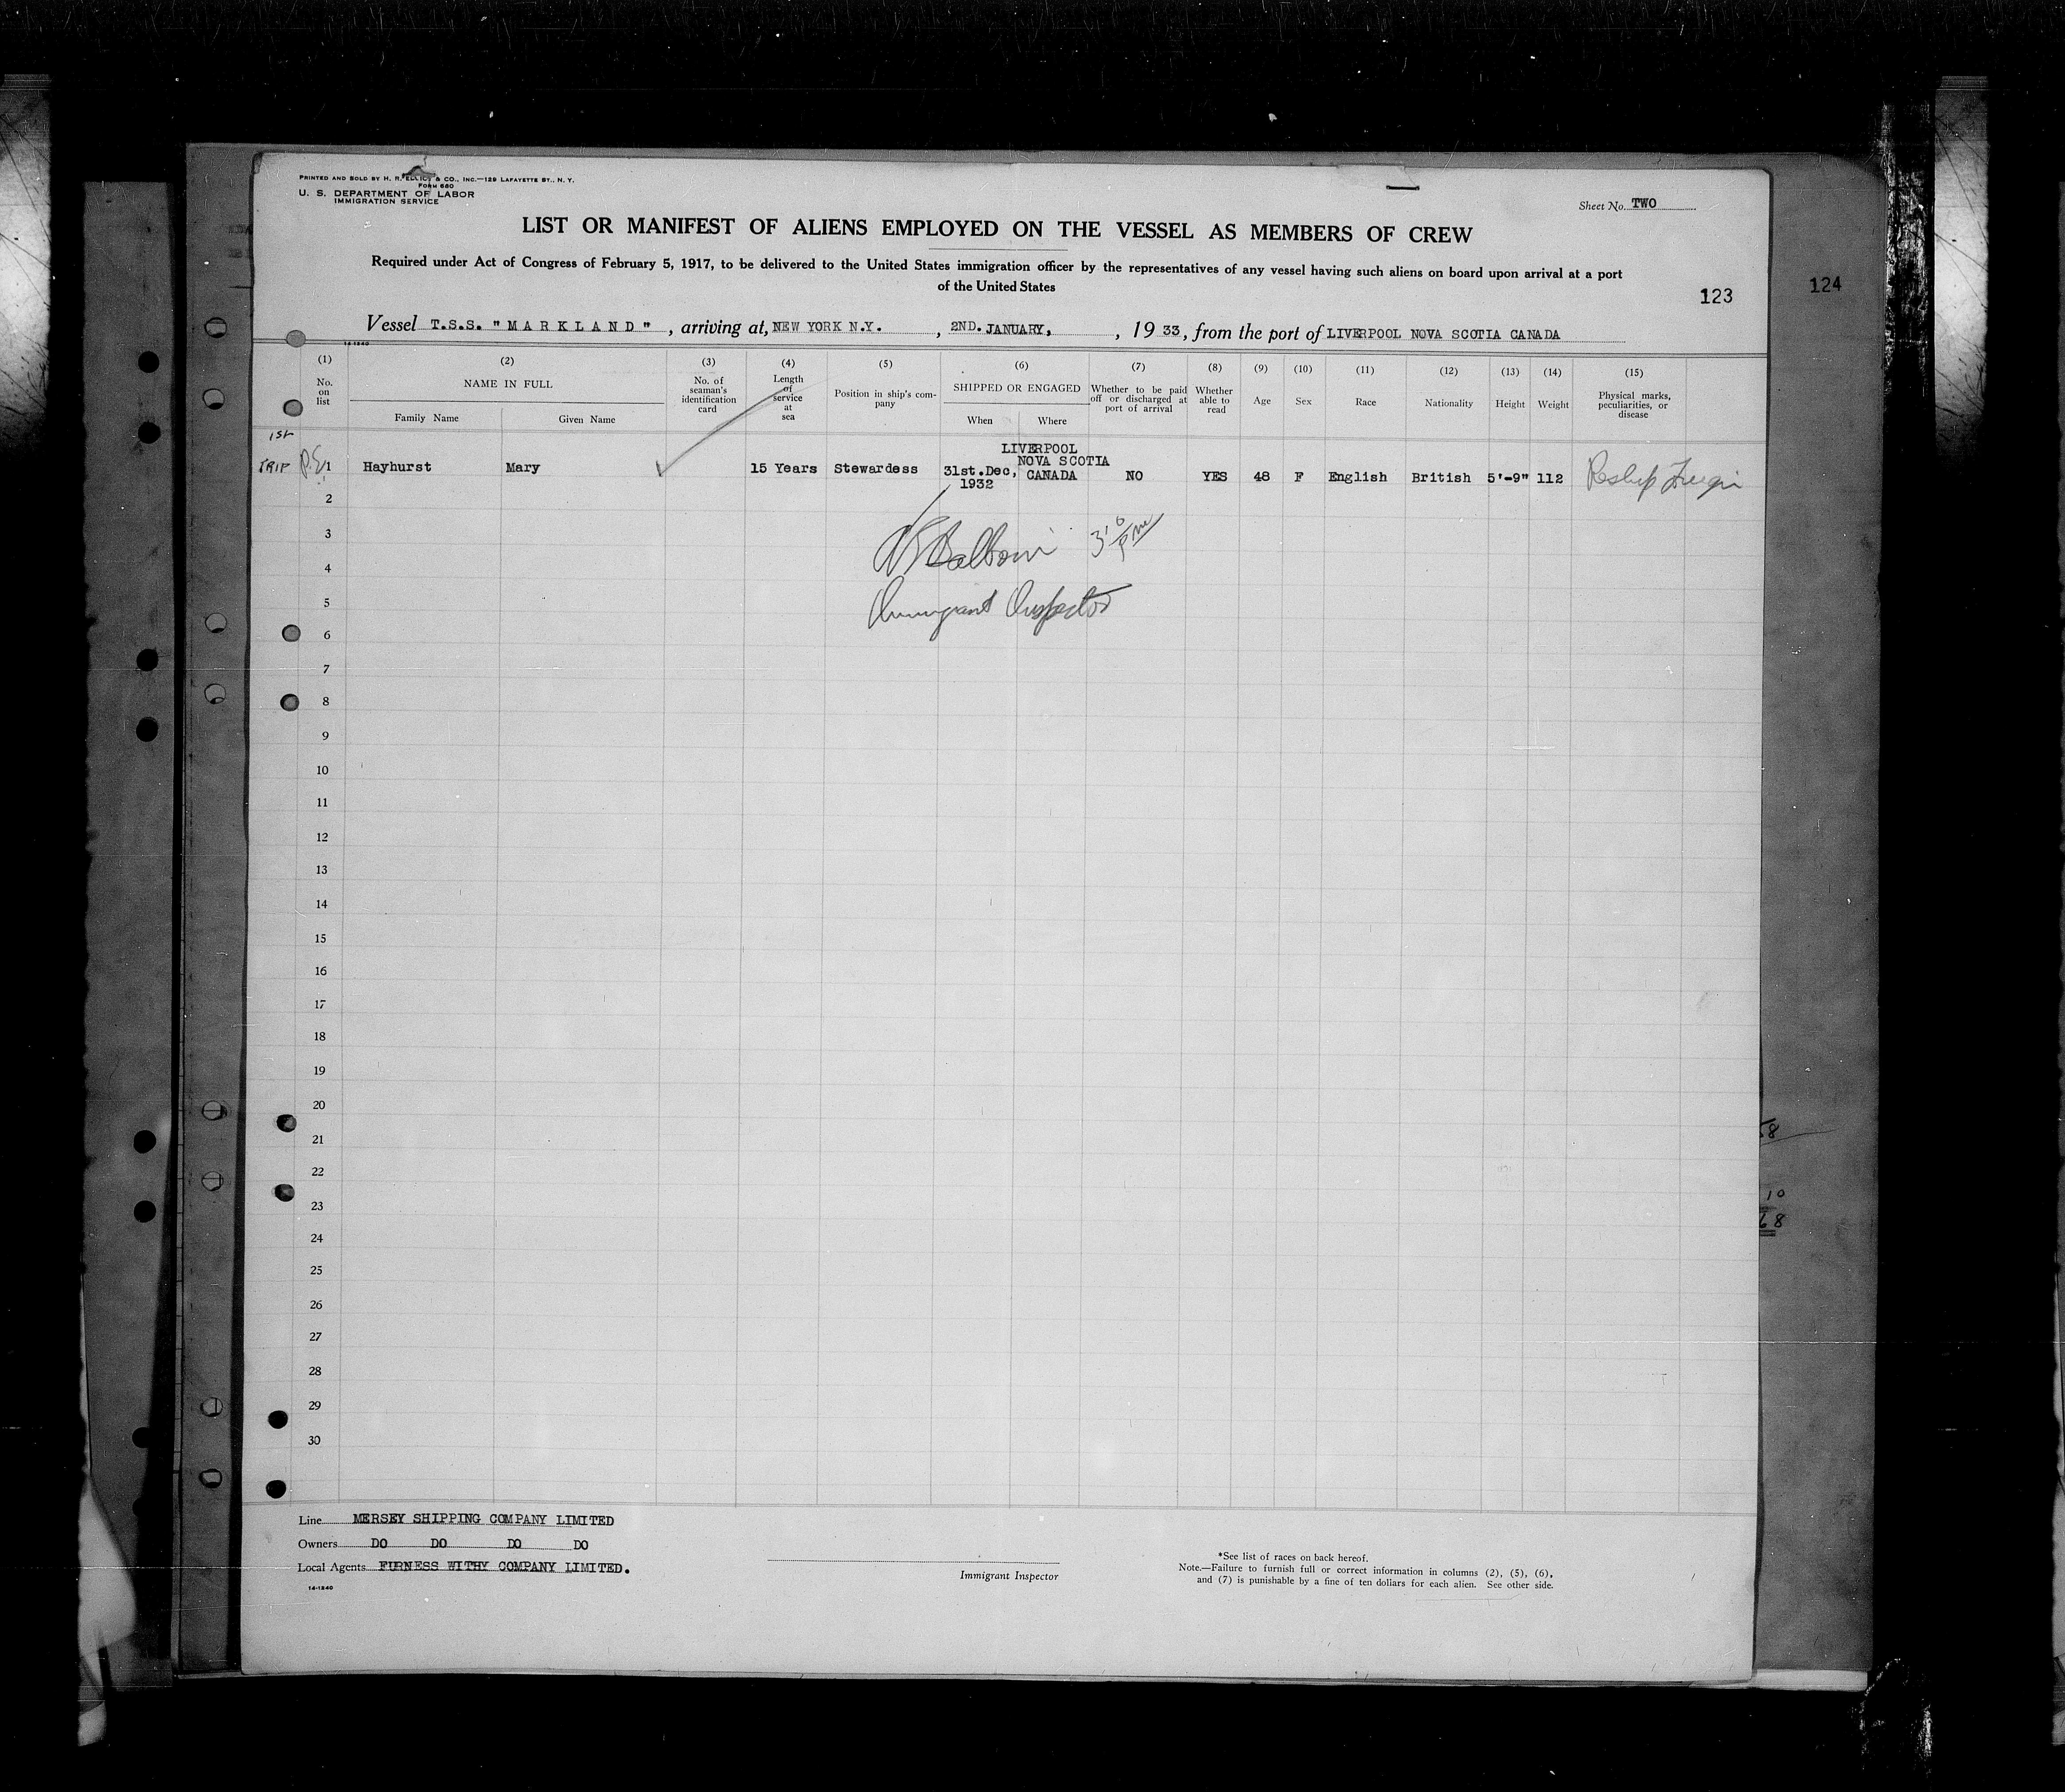 PRINTED AND SOLD BY H. R. ELLIOT & CO., INC.—129 LAFAYETTE ST., N. Y.
FORM 680
U. S. DEPARTMENT OF LABOR
IMMIGRATION SERVICE
Sheet No. TWO
LIST OR MANIFEST OF ALIENS EMPLOYED ON THE VESSEL AS MEMBERS OF CREW
Required under Act of Congress of February 5, 1917, to be delivered to the United States immigration officer by the representatives of any vessel having such aliens on board upon arrival at a port
of the United States
123
124
Vessel T.S.S. "MARKLAND", arriving at, NEW YORK N.Y., 2ND. JANUARY, , 1933, from the port of LIVERPOOL NOVA SCOTIA CANADA
14-1240
(1) (2) (3) (4) (5) (6) (7) (8) (9) (10) (11) (12) (13) (14) (15)
No. on list
NAME IN FULL
Family Name Given Name
No. of seaman's identification card
Length of service at sea
Position in ship's company
SHIPPED OR ENGAGED
When Where
Whether to be paid off or discharged at port of arrival
Whether able to read
Age
Sex
Race
Nationality
Height
Weight
Physical marks, peculiarities, or disease
1st
TRIP 1 Hayhurst Mary 15 Years Stewardess 31st.Dec, 1932 LIVERPOOL NOVA SCOTIA CANADA NO YES 48 F English British 5'-9" 112
2
3
4
Immigrant Inspector
5
6
7
8
9
10
11
12
13
14
15
16
17
18
19
20
21
22
23
24
25
26
27
28
29
30
10
68
Line MERSEY SHIPPING COMPANY LIMITED
Owners DO DO DO DO
Local Agents FURNESS WITHY COMPANY LIMITED.
14-1240
Immigrant Inspector
*See list of races on back hereof.
Note.—Failure to furnish full or correct information in columns (2), (5), (6),
and (7) is punishable by a fine of ten dollars for each alien. See other side.